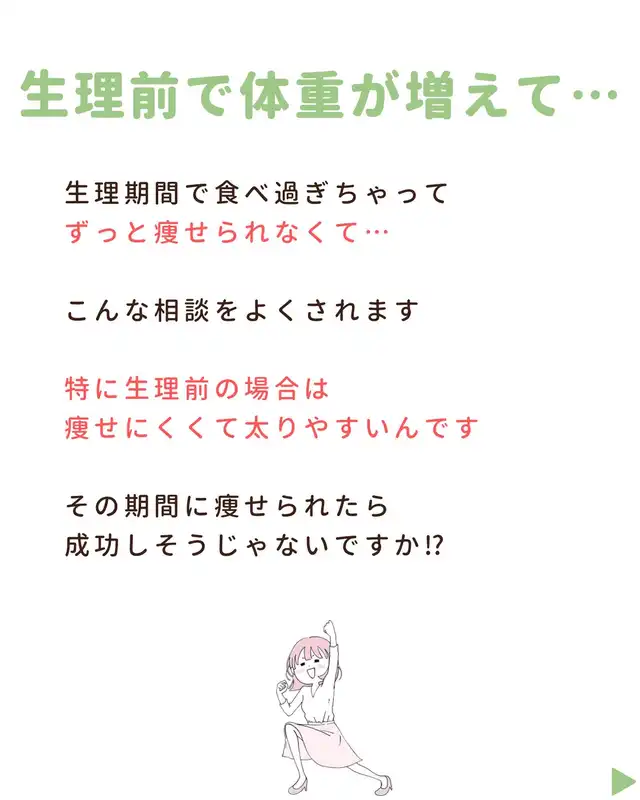 生理前で体重が増えて…
生理期間で食べ過ぎちゃって
ずっと痩せられなくて…
こんな相談をよくされます
特に生理前の場合は
痩せにくくて太りやすいんです
その期間に痩せられたら
成功しそうじゃないですか⁉